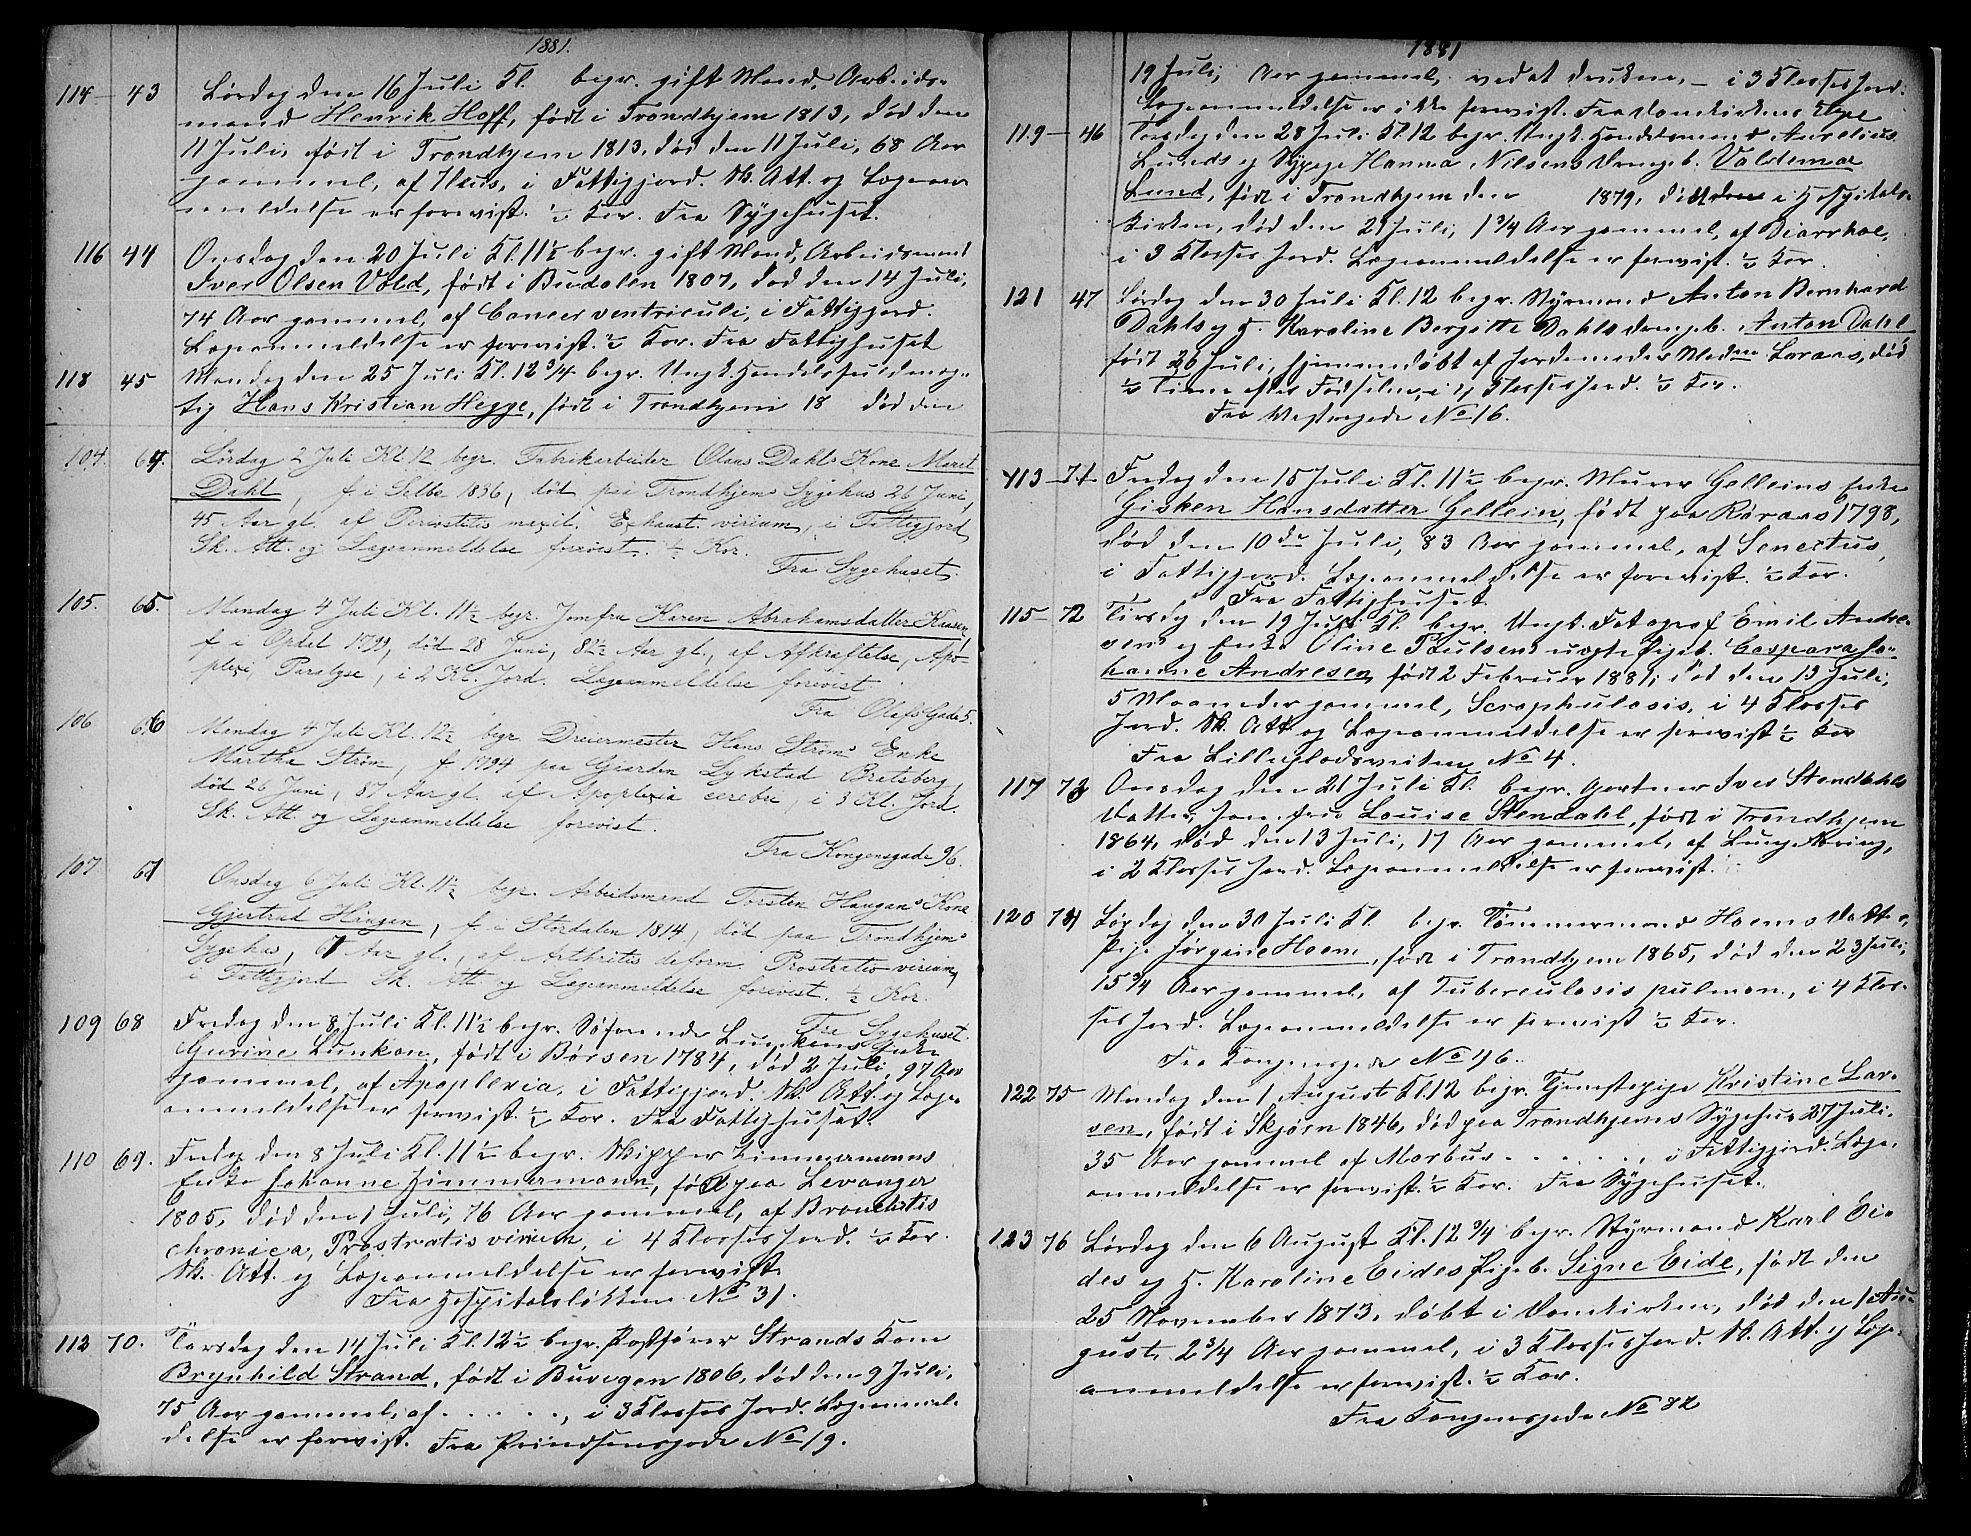 1881.
114 43 Lørdag den 16 Juli Kl. begr. gift Mand, Arbeids-
mand Henrik Hoff, født i Trondhjem 1813, død den
11 Juli, født i Trondhjem 1813, død den 11 Juli, 68 Aar
gammel, af Ileus, i Fattigjord. Sk. Att. og Lægean-
meldelse er forevist. ½ Kor. Fra Sygehuset.
116 44 Onsdag den 20 Juli Kl. 11½ begr. gift Mand, Arbeidsmand
Iver Olsen Vold, født i Budalen 1807, død den 14 Juli,
74 Aar gammel, af Cancer ventriculi, i Fattigjord.
Lægeanmeldelse er forevist. ½ Kor. Fra Fattighuset
118 45 Mandag den 25 Juli Kl. 12¾ begr. Ungk. Handelsfuldmæg-
tig Hans Kristian Hegge, født i Trondhjem 18 død den
104. 64. Lördag 2 Juli Kl. 12 begr. Fabrikarbeider Olaus Dahls Kone Meret
Dahl, f. i Selbo 1836, död paa Trondhjems Sygehus 26 Juni,
45 Aar gl. af Exhaust. virium, i Fattigjord
Sk. Att. og Lægeanmeldelse forevist. ½ Kor.
Fra Sygehuset.
105. 65. Mandag 4 Juli Kl. 11½ begr. Jomfru Karen Abrahamsdatter
f. i Opdal 1799, död 28 Juni, 82½ Aar gl., af Afkræftelse, Apo-
plexi, Paralyse, i 2 Kl. Jord. Lægeanmeldelse forevist
Fra Olafs Gade 5.
106 66 Mandag 4 Juli Kl. 12½ begr. Dreiermester Hans Strøms Enke
Martha Strøm, f. 1794 paa Gaarden Lykstad Bratsberg,
död 26 Juni, 87 Aar gl. af Apoplexia cerebri, i 3 Kl. Jord.
Sk. Att og Lægeanmeldelse forevist.
Fra Kongensgade 96.
107 67 Onsdag 6 Juli Kl. 11½ begr. Arbeidsmand Torsten Haugans Kone
Gjertrud Haugan, f. i Stördalen 1814, död paa Trondhjems
Sygehus, 67 Aar gl., af Arthritis deform. Prostratio virium,
i Fattigjord Sk. Att og Lægeanmeldelse forevist. ½ Kor.
Fra Sygehuset.
109 68 Fredag den 8 Juli Kl. 11½ begr. Søfarende Enke
Gurine Lunkan, født i Børsen 1784, død 2 Juli, 97 Aar
gammel, af Apoplexia, i Fattigjord. Sk. Att. og Læge-
anmeldelse er forevist. ½ Kor. Fra Fattighuset.
110 69. Fredag den 8 Juli Kl. 11½ begr. Skipper Zimmermanns
Enke Johanne Zimmermann, født paa Levanger
1805, død den 1 Juli, 76 Aar gammel, af Bronchitis
chronica, Prostratis virium, i 4 Klasses Jord. ½ Kor.
Sk. Att. og Lægeanmeldelse er forevist
Fra Hospitalsløkken No 31.
112 70. Torsdag den 14 Juli Kl. 12½ begr. Postfører Strands Kone
Brynhild Strand, født i Buvigen 1806, død den 9 Juli,
75 Aar gammel, af . . . . . ., i 3 Klasses Jord. Lægeanmel-
delse er forevist. Fra Prindsensgade No 19.
1881
19 Juli, Aar gammel, ved at drukne, – i 3 Klasses Jord.
Lægeanmeldelse er ikke forevist. Fra Domkirkens
119 46 Torsdag den 28 Juli Kl. 12 begr. Ungk. Handelsmand Aurelius
Lunds og Sypige Hanna Nilsens Drengeb. Valdemar
Lund, født i Trondhjem den 1879, døbt i Hospitals-
kirken, død den 21 Juli, 1¾ Aar gammel, af Diarrhoe,
i 3 Klasses Jord. Lægeanmeldelse er forevist. ½ Kor.
121 47 Lørdag den 30 Juli Kl. 12 begr. Styrmand Anton Bernhard
Dahls og H. Karoline Bergitte Dahls drengeb. Anton Dahl
født 26 Juli, hjemmedøbt af Jordemoder Mad. død
½ Time efter Fødselen, i 4 Klasses Jord. ½ Kor.
Fra Vestregade No 16.
113 71 Fredag den 15 Juli Kl. 11½ begr. Murer Gelleins Enke
Gisken Hansdatter Gellein, født paa Røraas 1798,
død den 10de Juli, 83 Aar gammel, af Senectus,
i Fattigjord. Lægeanmeldelse er forevist. ½ Kor.
Fra Fattighuset
115 72 Tirsdag den 19 Juli Kl. begr. Ungk. Fotograf Emil Andre-
sens og Enke Oline Poulsens uægte Pigeb. Caspara Jo-
hanne Andresen, født 2 Februar 1881, død den 13 Juli,
5 Maaneder gammel, Scrophulosis, i 4 Klasses
Jord. Sk. Att og Lægeanmeldelse er forevist ½ Kor
Fra Lillegladsveiten No 4.
117 73 Onsdag den 21 Juli Kl. begr. Gartner Iver Stendahls
Datter, Jomfru Louise Stendahl, født i Trondhjem
1864, død den 13 Juli, 17 Aar gammel, af Lungetæring,
i 2 Klasses Jord. Lægeanmeldelse er forevist.
120 74 Lørdag den 30 Juli Kl. begr. Tømmermand Hoems Datter,
Pige Jørgine Hoem, født i Trondhjem 1865, død den 23 Juli,
15¾ Aar gammel, af Tuberculosis pulmon., i 4 Klas-
ses Jord. Lægeanmeldelse er forevist ½ Kor.
Fra Kongensgade No 46.
122 75 Mandag den 1 August Kl. 12 begr. Tjenestepige Kristine Lar-
sen, født i Skjørn 1846, død paa Trondhjems Sygehus 27 Juli,
35 Aar gammel af Morbus . . . . . ., i Fattigjord. Læge-
anmeldelse er forevist. ½ Kor. Fra Sygehuset.
123 76 Lørdag den 6 August Kl. 12¾ begr. Styrmand Karl Ei-
des og H. Karoline Eides Pigeb. Signe Eide, født den
25 November 1873, døbt i Domkirken, død den 1 Au-
gust, 2¾ Aar gammel, i 3 Klasses Jord. Sk. Att. og Læge-
anmeldelse er forevist. ½ Kor.
Fra Kongensgade No 82